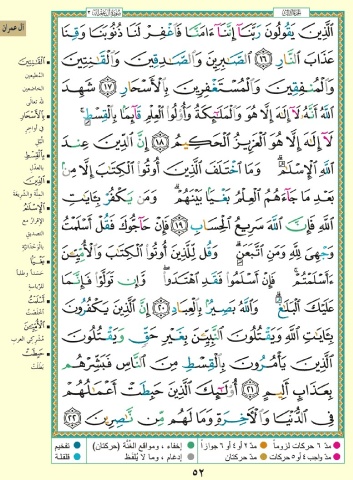 سورة آل عمران ٣
آل عمران
الَّذِينَ يَقُولُونَ رَبَّنَا إِنَّنَا ءَامَنَّا فَاغْفِرْ لَنَا ذُنُوبَنَا وَقِنَا
عَذَابَ النَّارِ ﴿١٦﴾ الصَّابِرِينَ وَالصَّادِقِينَ وَالْقَانِتِينَ
وَالْمُنفِقِينَ وَالْمُسْتَغْفِرِينَ بِالْأَسْحَارِ ﴿١٧﴾ شَهِدَ
اللَّهُ أَنَّهُ لَا إِلَٰهَ إِلَّا هُوَ وَالْمَلَائِكَةُ وَأُولُوا الْعِلْمِ قَائِمًا بِالْقِسْطِ
لَا إِلَٰهَ إِلَّا هُوَ الْعَزِيزُ الْحَكِيمُ ﴿١٨﴾ إِنَّ الدِّينَ عِندَ
اللَّهِ الْإِسْلَامُ وَمَا اخْتَلَفَ الَّذِينَ أُوتُوا الْكِتَابَ إِلَّا مِن
بَعْدِ مَا جَاءَهُمُ الْعِلْمُ بَغْيًا بَيْنَهُمْ وَمَن يَكْفُرْ بِآيَاتِ
اللَّهِ فَإِنَّ اللَّهَ سَرِيعُ الْحِسَابِ ﴿١٩﴾ فَإِنْ حَاجُّوكَ فَقُلْ أَسْلَمْتُ
وَجْهِيَ لِلَّهِ وَمَنِ اتَّبَعَنِ وَقُل لِّلَّذِينَ أُوتُوا الْكِتَابَ وَالْأُمِّيِّينَ
ءَأَسْلَمْتُمْ فَإِنْ أَسْلَمُوا فَقَدِ اهْتَدَوا وَّإِن تَوَلَّوْا فَإِنَّمَا
عَلَيْكَ الْبَلَاغُ وَاللَّهُ بَصِيرٌ بِالْعِبَادِ ﴿٢٠﴾ إِنَّ الَّذِينَ يَكْفُرُونَ
بِآيَاتِ اللَّهِ وَيَقْتُلُونَ النَّبِيِّينَ بِغَيْرِ حَقٍّ وَيَقْتُلُونَ
الَّذِينَ يَأْمُرُونَ بِالْقِسْطِ مِنَ النَّاسِ فَبَشِّرْهُم
بِعَذَابٍ أَلِيمٍ ﴿٢١﴾ أُولَٰئِكَ الَّذِينَ حَبِطَتْ أَعْمَالُهُمْ
فِي الدُّنْيَا وَالْآخِرَةِ وَمَا لَهُم مِّن نَّاصِرِينَ ﴿٢٢﴾
الْقَانِتِينَ
المطيعين
الخاضعين
لله تعالى
بِالْأَسْحَارِ
في أواخر
الليل
بِالْقِسْطِ
بالعدل
الدِّينَ
الملة والشريعة
الْإِسْلَامُ
الإقرار مع
التصديق
بالوحدانية
بَغْيًا
حسدا وطلبا
للرياسة
أَسْلَمْتُ
أخلصت
الْأُمِّيِّينَ
مشركي العرب
حَبِطَتْ
بطلت
مد ٦ حركات لزوماً
مد ٢ أو ٤ أو ٦ جوازاً
إخفاء، ومواقع الغنة (حركتان)
تفخيم
مد واجب ٤ أو ٥ حركات
مد حركتان
إدغام، وما لا يلفظ
قلقلة
٥٢